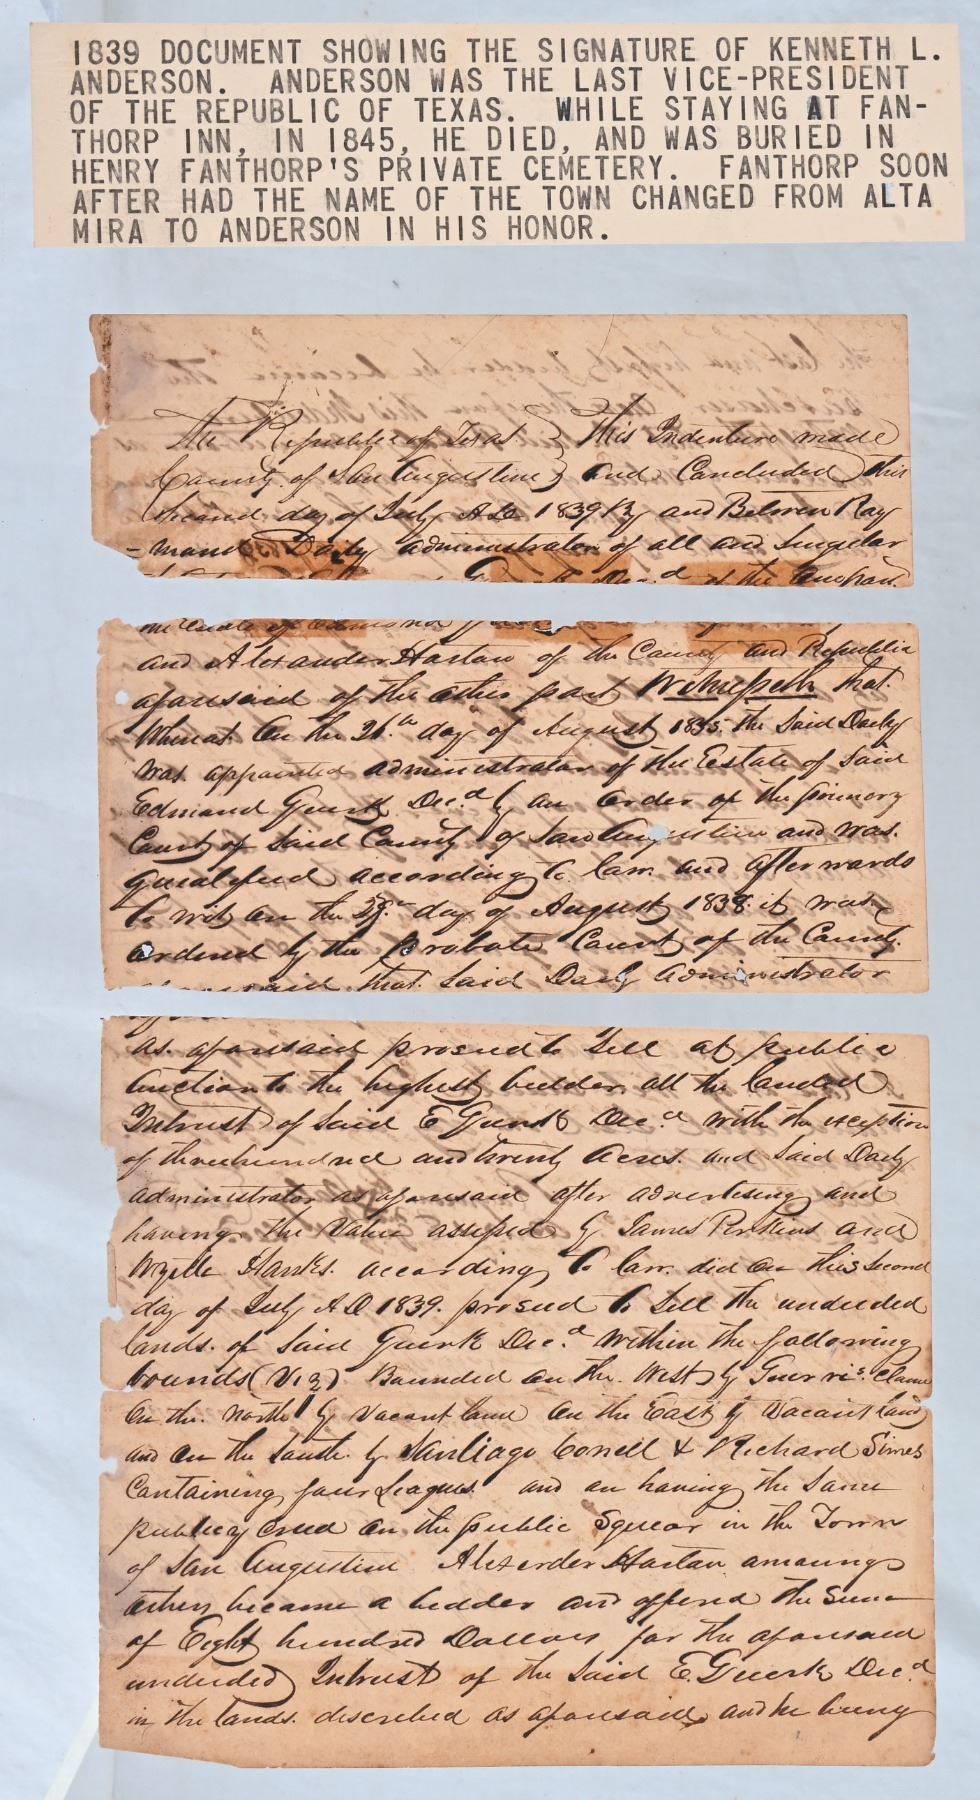 1839 DOCUMENT SHOWING THE SIGNATURE OF KENNETH L.
ANDERSON. ANDERSON WAS THE LAST VICE-PRESIDENT
OF THE REPUBLIC OF TEXAS. WHILE STAYING AT FAN-
THORP INN, IN 1845, HE DIED, AND WAS BURIED IN
HENRY FANTHORP'S PRIVATE CEMETERY. FANTHORP SOON
AFTER HAD THE NAME OF THE TOWN CHANGED FROM ALTA
MIRA TO ANDERSON IN HIS HONOR.
The Republic of Texas } This Indenture made
County of San Augustine } and Concluded this
Second day of July AD 1839 By and Between Ray
-mand Daily administrator of all and Singular
Dec.d of the
and Alexander Hartan of the County and Republic
aforesaid of the other part Witnesseth that
Whereas On the 21st day of August 1835 the Said Daily
was appointed administrator of the Estate of Said
Edmund Guerk Dec.d by an Order of the Primary
Court of Said County of San Augustine and was
qualified according to law and afterwards
to wit on the day of August 1838 it was
ordered by the Probate Court of the County
aforesaid that Said Daily administrator
as aforesaid proseed to Sell at public
Auction to the highest bidder all the landed
Intrust of Said E Guerk Dec.d with the exception
of threehundred and twenty Acres and Said Daily
administrator as aforesaid after advertising and
having the Value assessed by James Perkins and
Wyatt Hanks according to law did on this Second
day of July A.D 1839. proseed to Sell the undeeded
lands of Said Guerk Dec.d Within the following
bounds (Viz) Bounded on the West by claim
On the North by Vacant land On the East by Vacant land
and on the South by Santiago Conell & Richard Simes
Containing four Leagues and on having the Same
publicly cried on the public Squear in the Town
of San Augustine Alexander Hartan amoung
others became a bidder and offered the Sum
of Eight hundred Dollars for the aforesaid
undeeded Intrust of the Said E. Guerk Dec.d
in the lands described as aforesaid and he being